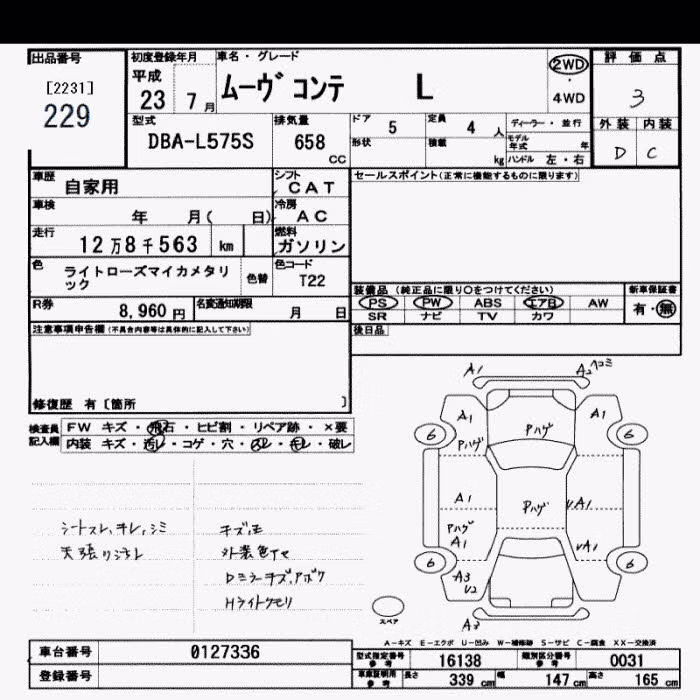 出品番号
[2231]
229
初度登録年月
平成
23 7月
車名・グレード
ムーヴ コンテ L
2WD
・
4WD
評価点
3
外装 内装
D C
型式
DBA-L575S
排気量
658
CC
ドア
5
定員
4 人
ディーラー・並行
形状
積載
kg
モデル年式
年
ハンドル 左・右
車歴
自家用
シフト
CAT
セールスポイント(正常に機能するものに限ります)
車検
年 月( 日)
冷房
AC
走行
12万8千563 km
燃料
ガソリン
色
ライトローズマイカメタリック
色替
色コード
T22
装備品 (純正品に限り○をつけてください)
PS PW ABS エアB AW
SR ナビ TV カワ
新車保証書
有・無
R券
8,960 円
名変通知期限
月 日
後日品
注意事項申告欄(不具合内容等は具体的に記入して下さい)
修復歴 有〔箇所 〕
検査員記入欄
FW キズ・飛石・ヒビ割・リペア跡・×要
内装 キズ・汚レ・コゲ・穴・スレ・キレ・破レ
シートスレ、キレ、シミ
天張りシキレ
キズ、エ
外装色アセ
Dミラーキズ、アボク
Hライトクモリ
A1 A2 ヘコミ
A1 A1
6 6
Pハゲ Pハゲ
A1 Pハゲ A1
Pハゲ
A1 A1
6 6
A3
A3
スペア
A-キズ E-エクボ U-凹み W-補修跡 S-サビ C-腐食 XX-交換済
車台番号
0127336
登録番号
型式指定番号
参考
16138
類別区分番号
参考
0031
車庫証明用
参考
長さ 339 cm 幅 147 cm 高さ 165 cm